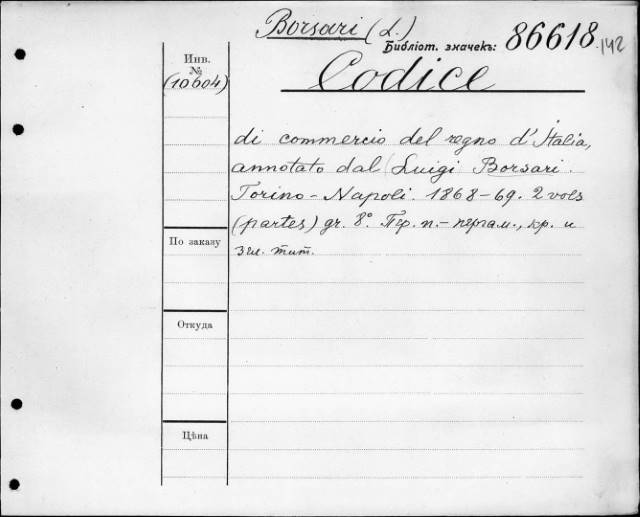 Borsari (L.)
Библіот. значекъ: 86618.142
Codice
Инв.
№
(10604)
di commercio del regno d'Italia,
annotato dal (Luigi Borsari.
Torino-Napoli. 1868-69. 2 vols
(partes) gr. 8°. Пер. п.-пергам., кр. и
зел. тит.
По заказу
Откуда
Цѣна